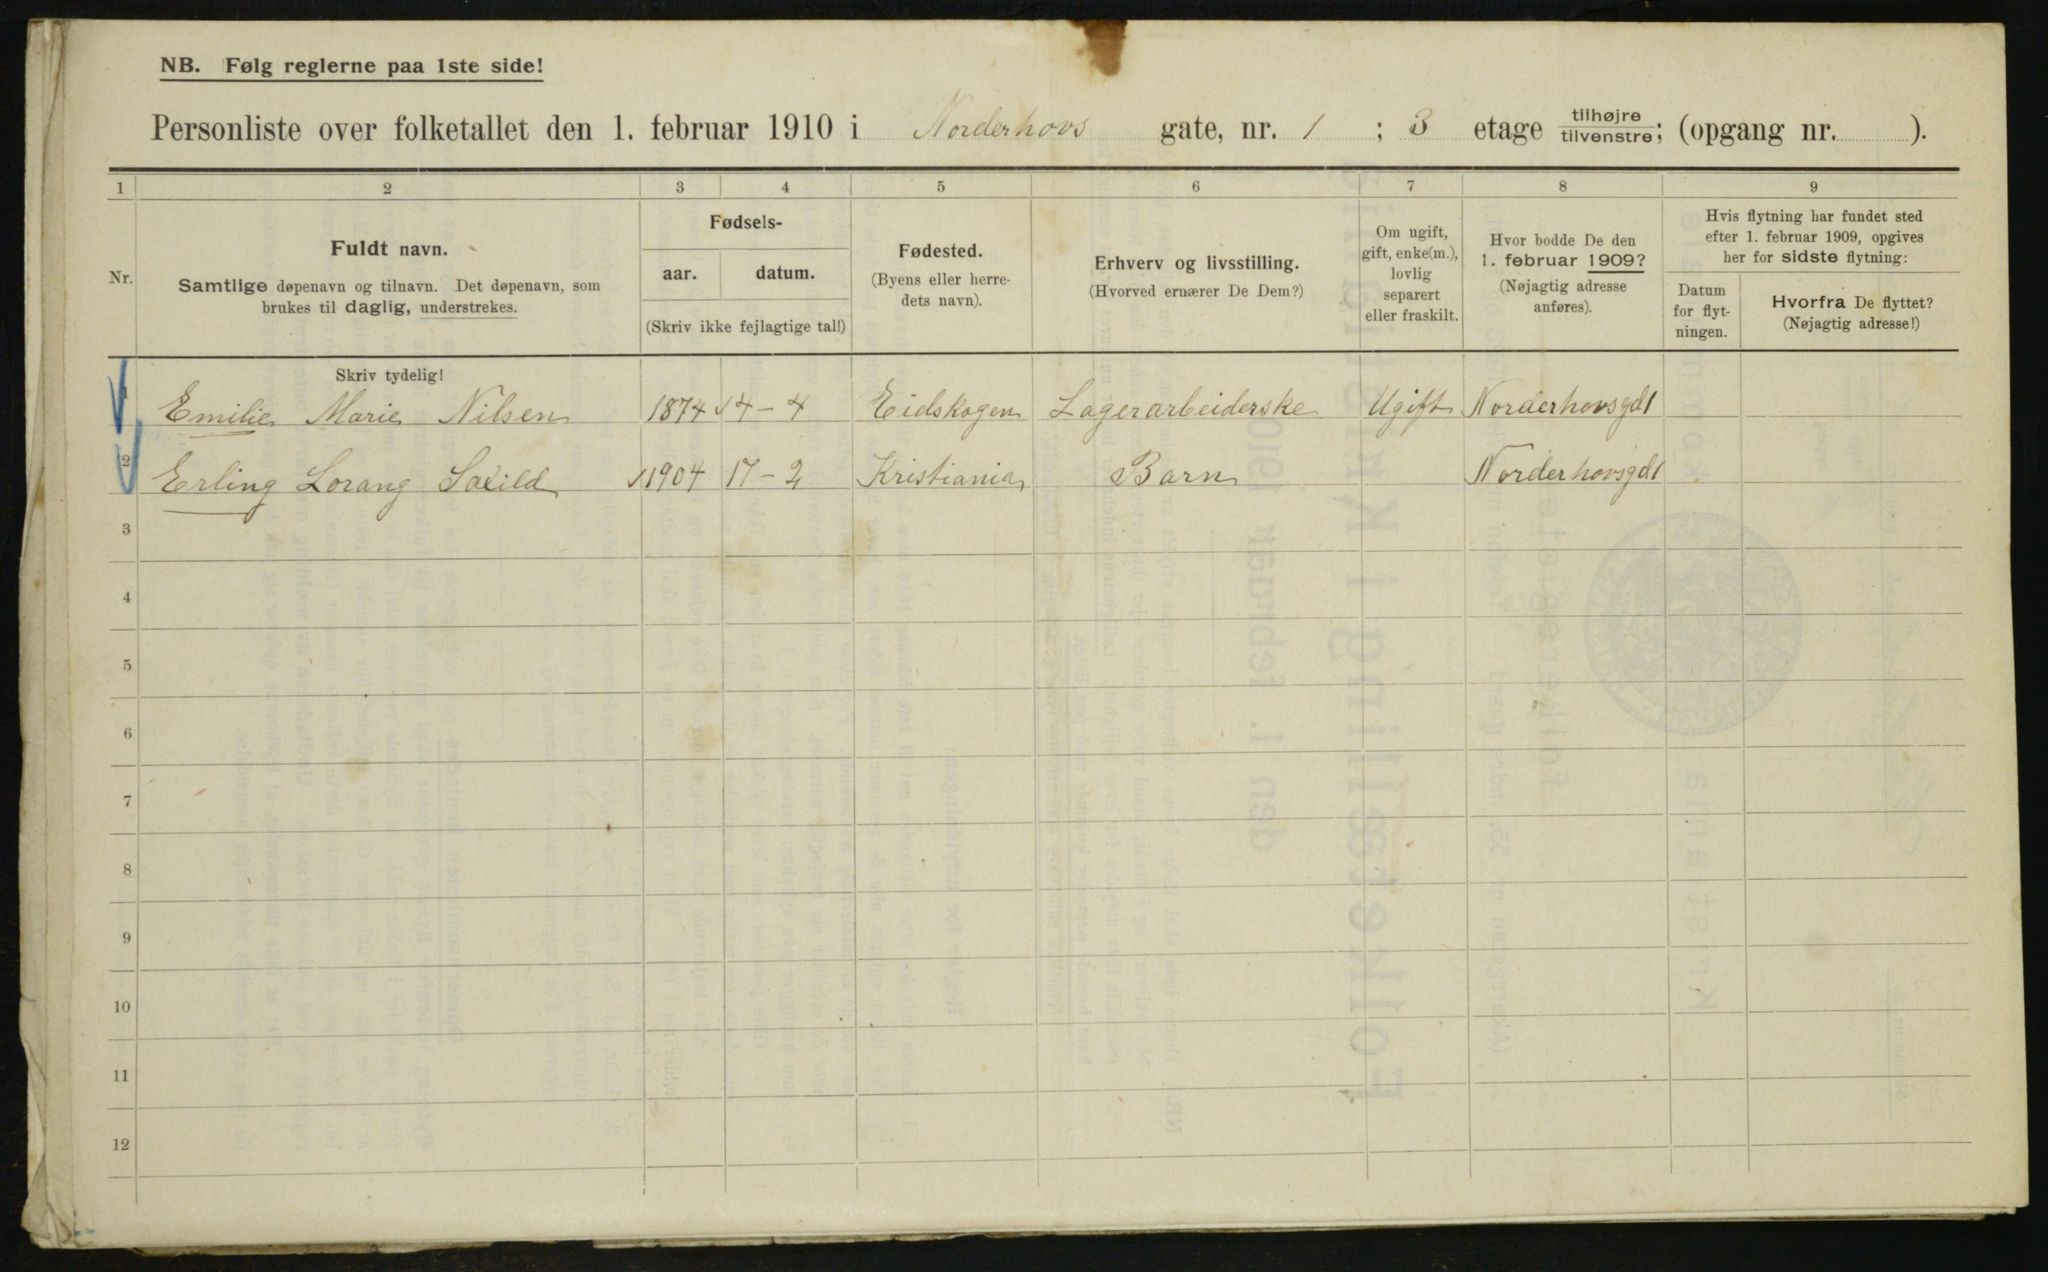 NB. Følg reglerne paa 1ste side!
Personliste over folketallet den 1. februar 1910 i Norderhovs gate, nr. 1 ; 3 etage tilhøjre tilvenstre; (opgang nr. ).
1 2 3 4 5 6 7 8 9
Nr.
Fuldt navn.
Samtlige døpenavn og tilnavn. Det døpenavn, som
brukes til daglig, understrekes.
Fødsels-
aar. datum.
(Skriv ikke fejlagtige tal!)
Fødested.
(Byens eller herre-
dets navn).
Erhverv og livsstilling.
(Hvorved ernærer De Dem?)
Om ugift,
gift, enke(m.),
lovlig
separert
eller fraskilt.
Hvor bodde De den
1. februar 1909?
(Nøjagtig adresse
anføres).
Hvis flytning har fundet sted
efter 1. februar 1909, opgives
her for sidste flytning:
Datum
for flyt-
ningen.
Hvorfra De flyttet?
(Nøjagtig adresse!)
Skriv tydelig!
1 Emilie Marie Nilsen 1874 14-4 Eidskogen Lagerarbeiderske Ugift Norderhovsgd1
2 Erling Lorang Soxild 1904 17-2 Kristiania Barn Norderhovsgd1
3
4
5
6
7
8
9
10
11
12